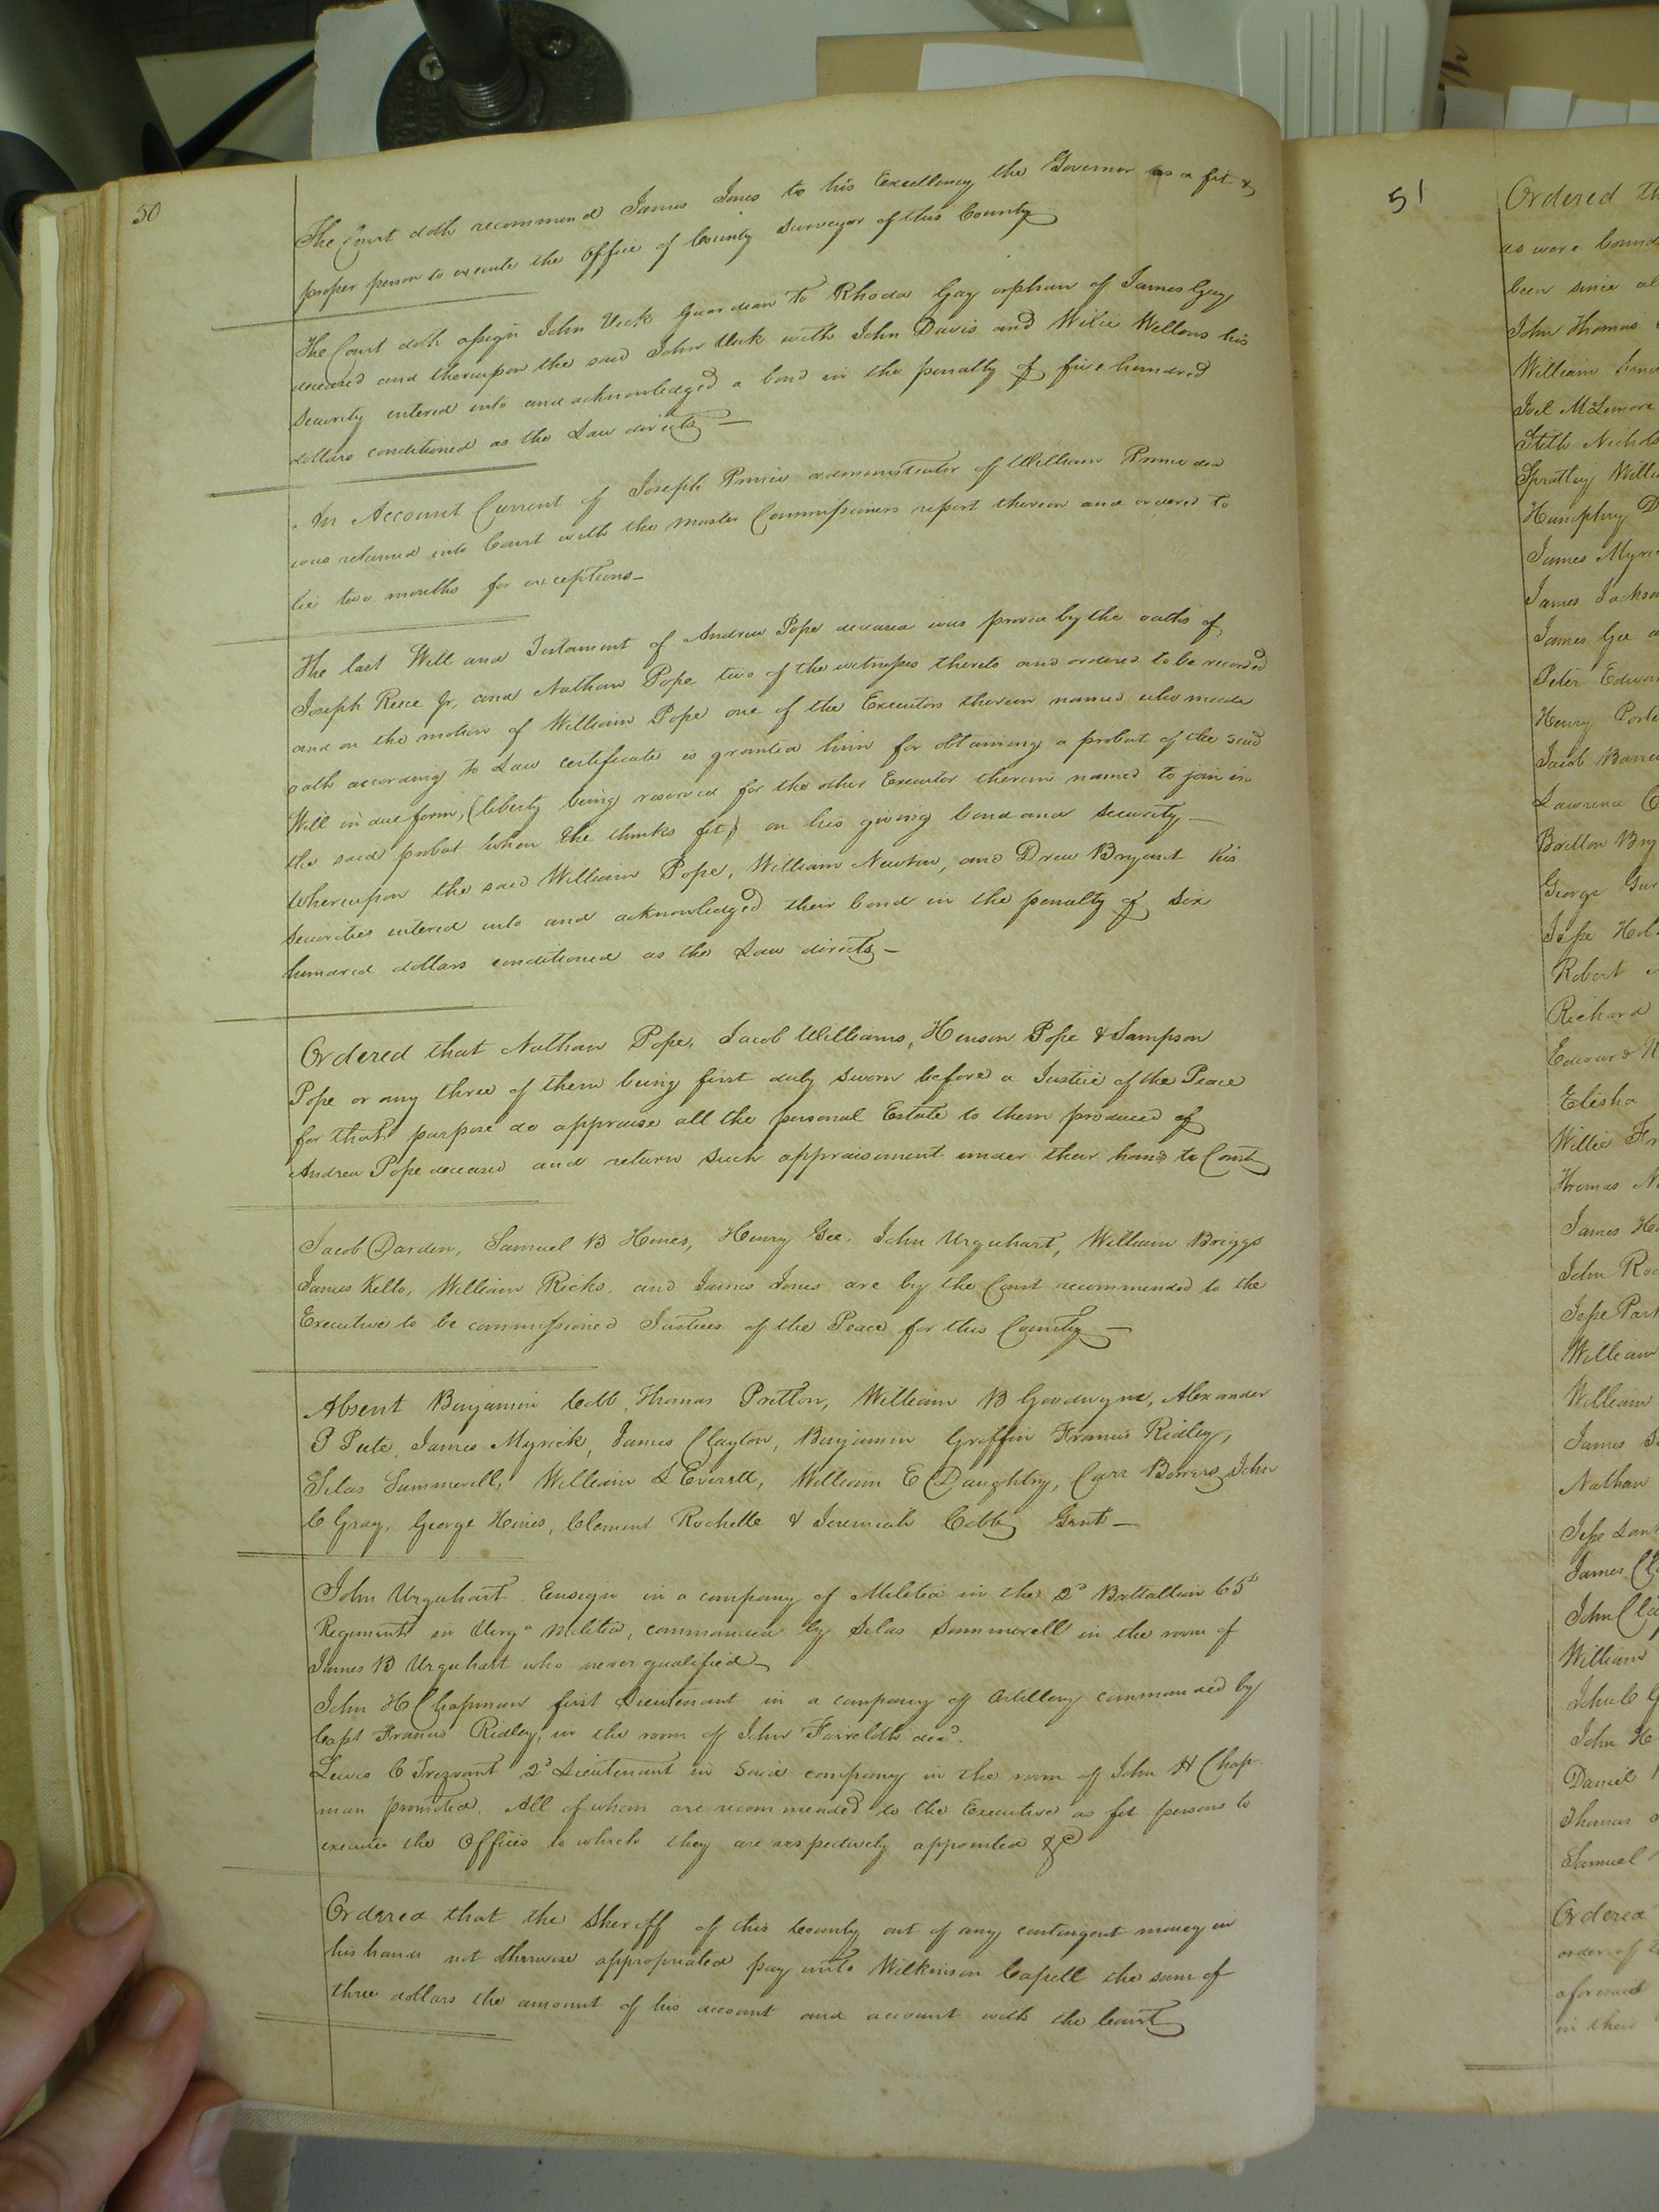 50
The Court doth recommend James Jones to his Excellency the Governor as a fit &
proper person to execute the Office of County Surveyor of this County
The Court doth assign John Vick Guardian to Rhoda Gay orphan of James Gay
deceased and thereupon the said John Vick with John Davis and Wilie Wellons his
Security entered into and acknowledged a bond in the penalty of five hundred
dollars conditioned as the Law directs —
An Account Current of Joseph Prince administrator of William Prince decd
was returned into Court with the Master Commissioners report thereon and ordered to
lie two months for exceptions —
The last Will and Testament of Andrew Pope deceased was proved by the oaths of
Joseph Reese Jr, and Nathan Pope two of the witnesses thereto and ordered to be recorded
and on the motion of William Pope one of the Executors therein named who made
oath according to Law certificate is granted him for obtaining a probat of the said
Will in due form, (liberty being reserved for the other Executor therein named to join in
the said probat when he thinks fit) on his giving bond and security —
Whereupon the said William Pope, William Newton, and Drew Bryant his
Securities entered into and acknowledged their bond in the penalty of Six
hundred dollars conditioned as the Law directs —
Ordered that Nathan Pope, Jacob Williams, Henson Pope & Sampson
Pope or any three of them being first duly sworn before a Justice of the Peace
for that purpose do appraise all the personal Estate to them produced of
Andrew Pope deceased and return such appraisement under their hands to Court
Jacob Darden, Samuel B Hines, Henry Gee, John Urquhart, William Briggs
James Kello, William Ricks, and James Jones are by the Court recommended to the
Executive to be commissioned Justices of the Peace for this County —
Absent Benjamin Cobb, Thomas Pretlow, William B Goodwyne, Alexander
P Peete, James Myrick, James Clayton, Benjamin Griffin Francis Ridley,
Silas Summerell, William L Everett, William E Daughtry, Carr Bowers, John
C Gray, George Hines, Clement Rochelle & Jeremiah Cobb, Gent —
John Urquhart Ensign in a company of Militia in the 2d Battallion 65th
Regiment in Virga Militia, commanded by Silas Summerell in the room of
James B Urquhart who never qualified —
John H Chapman first Lieutenant in a company of Artillery commanded by
Capt Francis Ridley, in the room of John decd.
Lewis C Trezvant 2d Lieutenant in Said company in the room of John H Chap-
man promoted. All of whom are recommended to the Executive as fit persons to
execute the Offices to which they are respectively appointed &c
Ordered that the Sheriff of this County out of any contingent money in
his hands not otherwise appropriated pay unto Wilkinson Capell the sum of
three dollars the amount of his account and account with the Court
51
Ordered th
as were bound
been since
John Thomas
William
Joel McLemore
Stith Nichols
Spratley Willi
Humphry D
James Myri
James Jackson
James Gee
Peter Edwar
Henry Porte
Jacob Barre
Lawrence
Britton Bry
George Gur
Jesse Hol
Robert
Richard
Edward
Elisha
Willie Fr
Thomas N
James Ho
John Ro
Jesse Par
William
William
James
Nathan
Jesse
James Cl
John Cl
William
John C G
John H
Daniel
Thomas
Samuel
Ordered
order of
aforesaid
in their